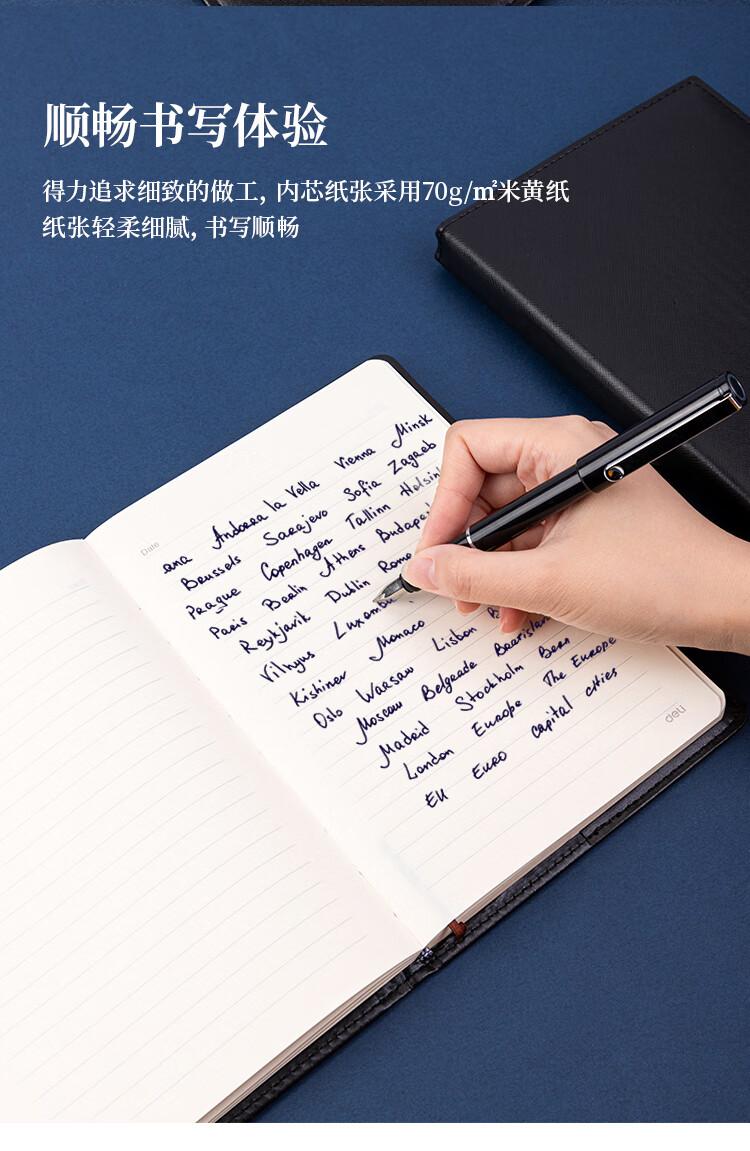 顺畅书写体验
得力追求细致的做工, 内芯纸张采用70g/㎡米黄纸
纸张轻柔细腻, 书写顺畅
Date
ana Andorra la Vella Vienna Minsk
Brussels Sarajevo Sofia Zagreb
Prague Copenhagen Tallinn Helsink
Paris Berlin Athens Budapest
Reykjavik Dublin Rome
Vilnyus Luxembu
Kishinev Monaco Lisbon
Oslo Warsaw Belgrade Bratislav
Moscow Stockholm Bern
Madrid Europe The Europe
London Euro capital cities
EU
deli